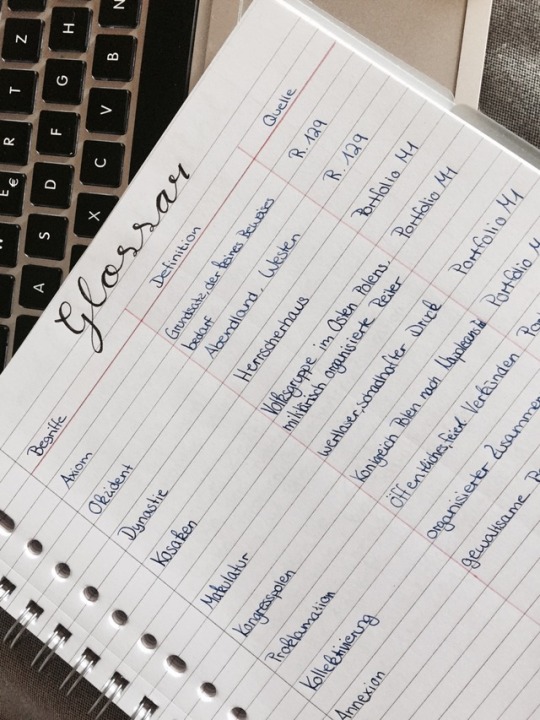 Glossar
Begriffe Definition Quelle
Axiom Grundsatz, der keines Beweises R. 129
bedarf
Okzident Abendland, Westen R. 129
Dynastie Herrscherhaus Portfolio M1
Kosaken Volksgruppe im Osten Polens, Portfolio M1
militärisch organisierte Reiter
Makulatur wertloser, schadhafter Druck Portfolio M1
Kongresspolen Königreich Polen nach Portfolio M
Proklamation Öffentliches, feierl. Verkünden
Kollektivierung organisierter Zusammen
Annexion gewaltsame
Z
H
N
T
G
B
R
F
V
E
€
D
C
S
X
A